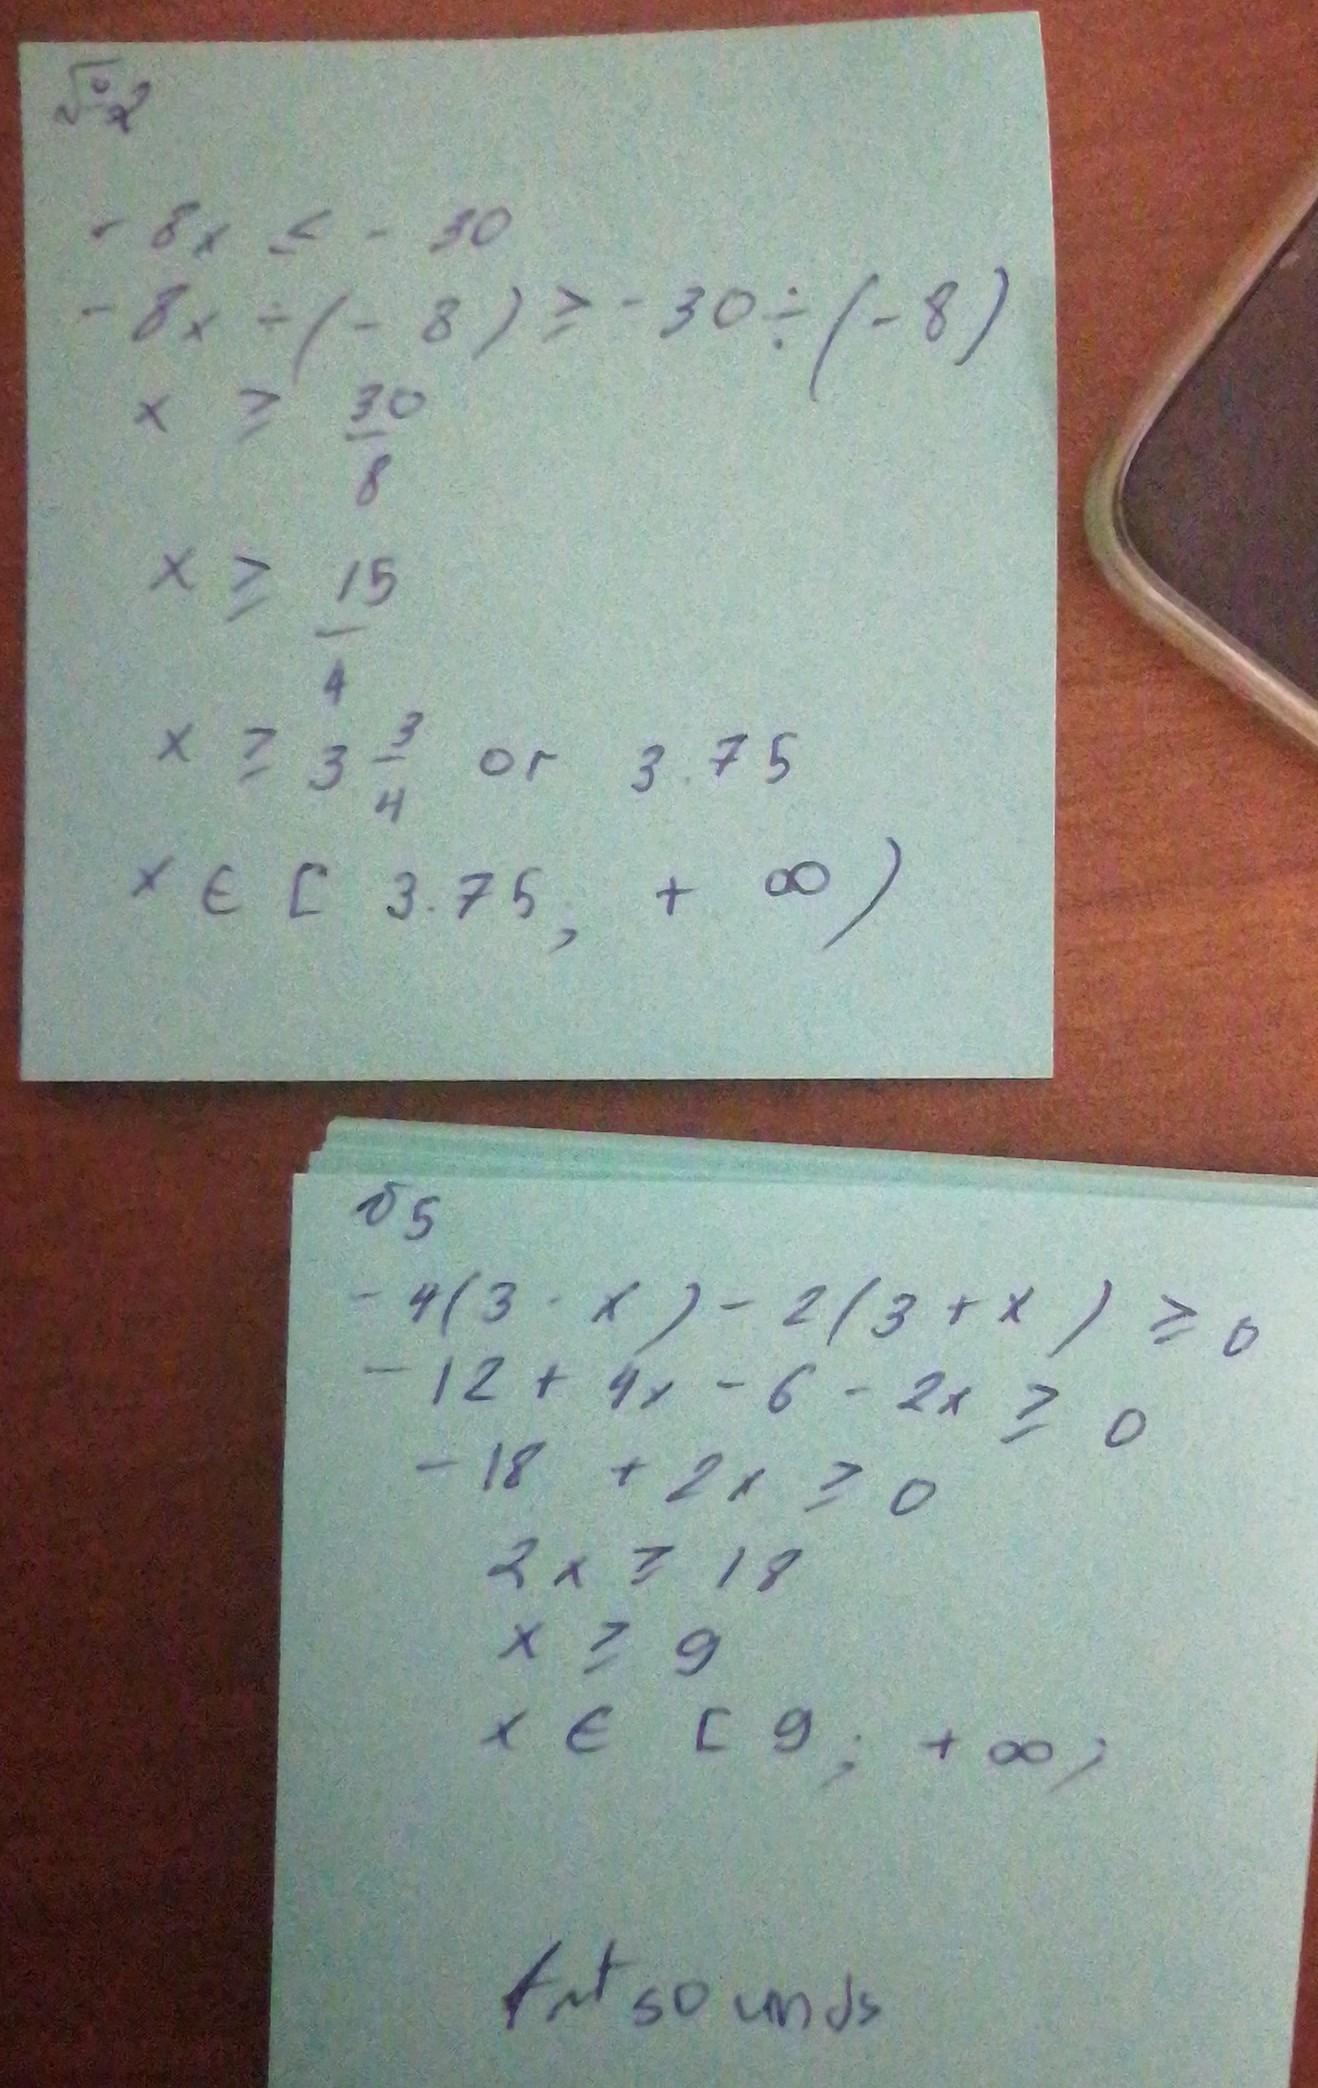 №2
- 8x ≤ - 30
- 8x ÷ (- 8) ≥ - 30 ÷ (- 8)
x ≥ 30/8
x ≥ 15/4
x ≥ 3 3/4 or 3.75
x ∈ [ 3.75; + ∞ )
№5
- 4(3 - x) - 2(3 + x) ≥ 0
- 12 + 4x - 6 - 2x ≥ 0
- 18 + 2x ≥ 0
2x ≥ 18
x ≥ 9
x ∈ [ 9; + ∞ )